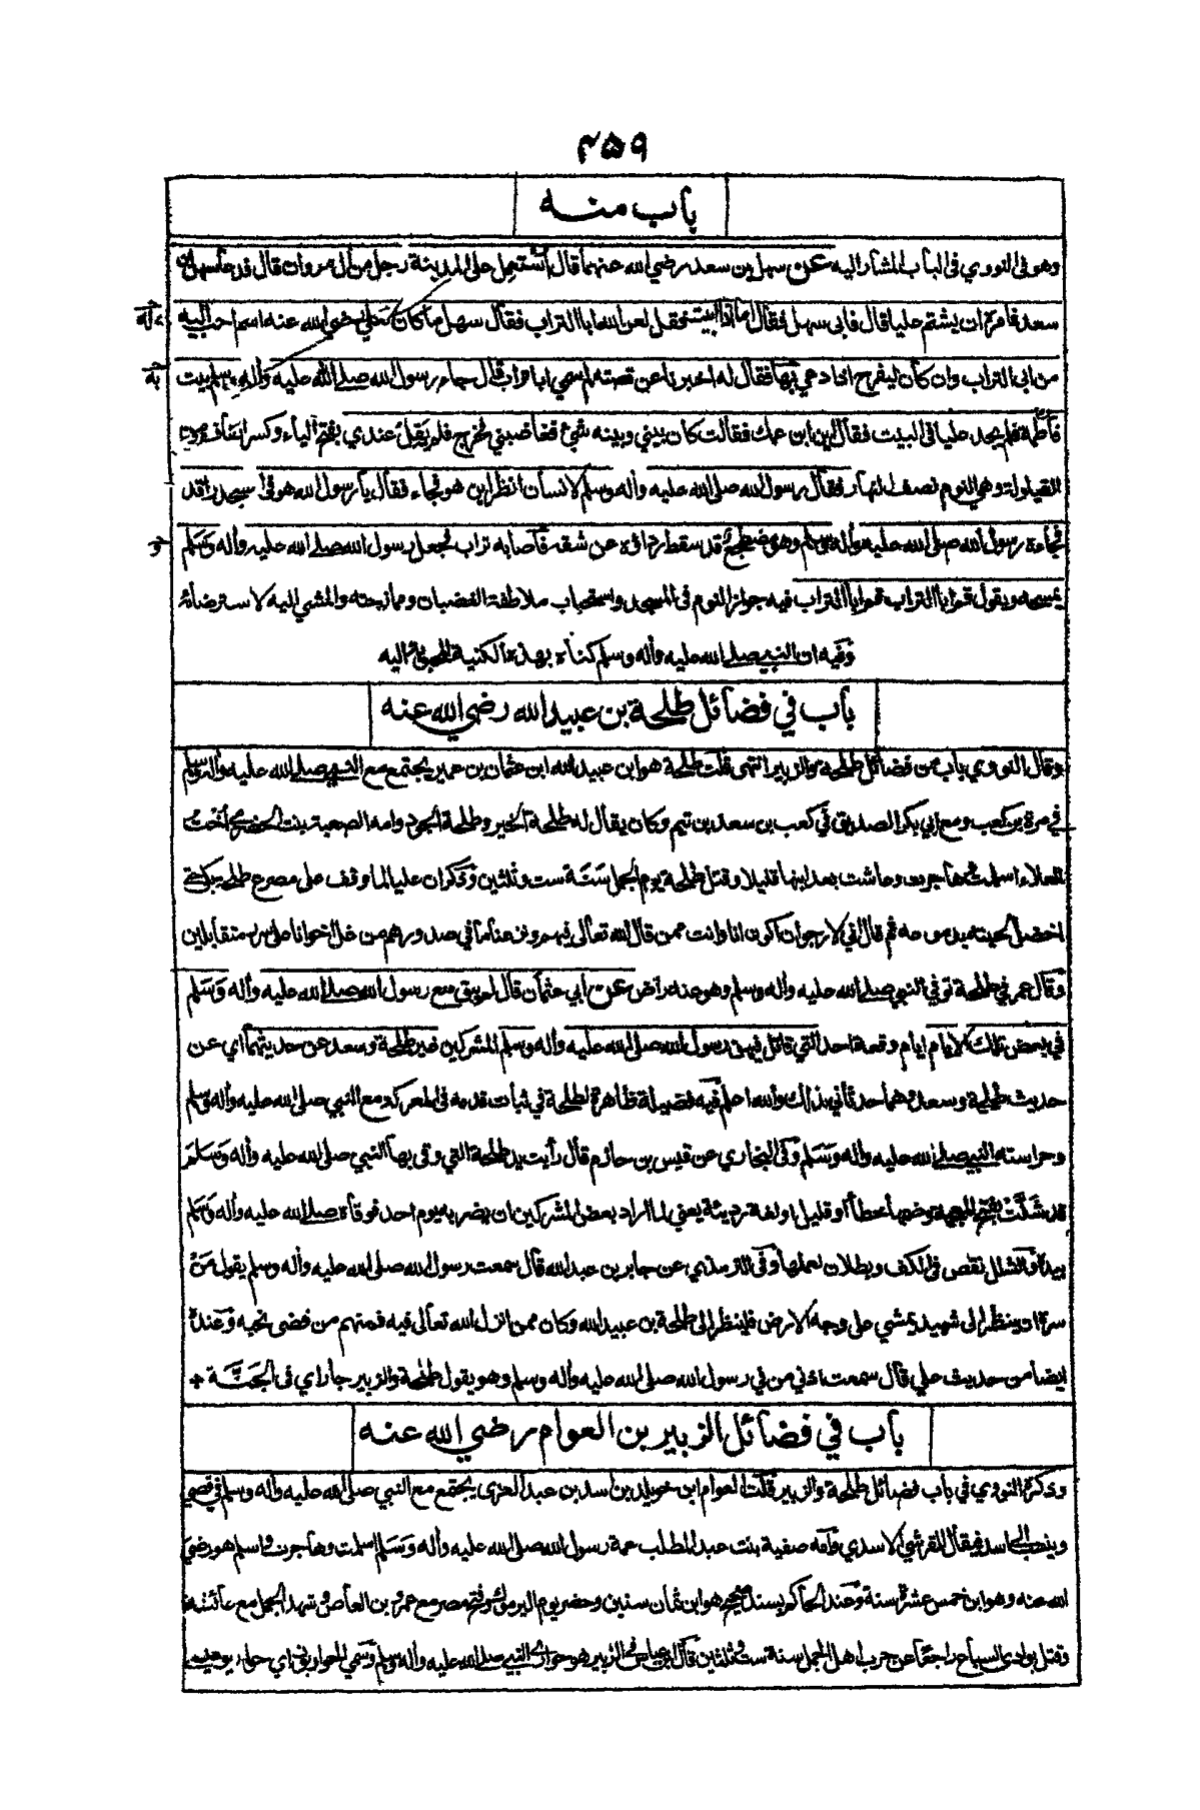 ٤٥٩
باب منه
وهو في النووي في الباب المشار اليه عن سهل بن سعد رضي الله عنهما قال أستعمل على المدينة رجل من أل مروان قال فدعا سهل بن
سعد فامره ان يشتم عليا قال فابى سهل فقال اما اذا ابيت فقل لعن الله ابا التراب فقال سهل ما كان لعلي رضي الله عنه اسم احب اليه
من ابي التراب وان كان ليفرح اذا دعي بها فقال له اخبرنا عن قصته لم سمي ابا تراب قال جاء رسول الله صلى الله عليه وأله وسلم بيت
فاطمة فلم يجد عليا في البيت فقال اين ابن عمك فقالت كان بيني وبينه شيء فغاضبني فخرج فلم يقل عندي بفتح الياء وكسر القاف من
القيلولة وهي النوم نصف النهار فقال رسول الله صلى الله عليه وأله وسلم لانسان انظر اين هو فجاء فقال يا رسول الله هو في المسجد راقد
فجاءه رسول الله صلى الله عليه وأله وسلم وهو مضطجع قد سقط رداؤه عن شقه فأصابه تراب فجعل رسول الله صلى الله عليه وأله وسلم
يمسحه ويقول قم ابا التراب قم ابا التراب فيه جواز النوم في المسجد واستحباب ملاطفة الغضبان وممازحته والمشي اليه لاسترضائه
وفيه ان النبي صلى الله عليه وأله وسلم كناه بهذه الكنية المحببة اليه
باب في فضائل طلحة بن عبيد الله رضي الله عنه
وقال النووي باب من فضائل طلحة والزبير انتهى قلت طلحة هو ابن عبيد الله ابن عثمان بن عمير يجتمع مع النبي صلى الله عليه وأله وسلم
في مرة بن كعب ومع ابي بكر الصديق في كعب بن سعد بن تيم وكان يقال له طلحة الخير وطلحة الجود وامه الصعبة بنت الحضرمي أخت
العلاء اسلمت وهاجرت وعاشت بعد ابنها قليلا وقتل طلحة يوم الجمل سنة ست وثلثين وذكر ان عليا لما وقف على مصرع طلحة بكى حتى
اخضل لحيته بدموعه ثم قال اني لارجو ان اكون انا وانت ممن قال الله تعالى فيهم ونزعنا ما في صدورهم من غل اخوانا على سرر متقابلين
وقال عمر في طلحة توفي النبي صلى الله عليه وأله وسلم وهو عنه راض عن ابي عثمان قال لم يبق مع رسول الله صلى الله عليه وأله وسلم
في بعض تلك الايام ايام وقعة احد التي قاتل فيهن رسول الله صلى الله عليه وأله وسلم المشركين غير طلحة وسعد عن حديثهما اي عن
حديث طلحة وسعد وهما حدثاني بذلك والله اعلم فيه فضيلة ظاهرة لطلحة في ثبات قدمه في المعركة مع النبي صلى الله عليه وأله وسلم
وحراسته النبي صلى الله عليه وأله وسلم وفي البخاري عن قيس بن حازم قال رأيت يد طلحة التي وقى بها النبي صلى الله عليه وأله وسلم
قد شلت بفتح المعجمة وضمها خطأ او قليل او لغة رديئة يعني لما اراد بعض المشركين ان يضربه يوم احد فوقاه صلى الله عليه وأله وسلم
بيده والشلل نقص في الكف وبطلان لعملها وفي الترمذي عن جابر بن عبد الله قال سمعت رسول الله صلى الله عليه وأله وسلم يقول من
سره ان ينظر الى شهيد يمشي على وجه الارض فلينظر الى طلحة بن عبيد الله وكان ممن انزل الله تعالى فيه فمنهم من قضى نحبه وعنده
ايضا من حديث علي قال سمعت اذني من في رسول الله صلى الله عليه وأله وسلم وهو يقول طلحة والزبير جاراي في الجنة +
باب في فضائل الزبير بن العوام رضي الله عنه
وذكره النووي في باب فضائل طلحة والزبير قلت العوام ابن خويلد بن اسد بن عبد العزى يجتمع مع النبي صلى الله عليه وأله وسلم في قصي
وينسب الى اسد فيقال القرشي الاسدي وأمه صفية بنت عبد المطلب عمة رسول الله صلى الله عليه وأله وسلم اسلمت وهاجرت واسلم هو رضي
الله عنه وهو ابن خمس عشرة سنة وعند الحاكم بسند صحيح هو ابن ثمان سنين وحضر يوم اليرموك وفتح مصر مع عمرو بن العاص وشهد الجمل مع عائشة
وقتل بوادي السباع راجعا عن حرب اهل الجمل سنة ست وثلثين قال ابن عباس في الزبير هو حواري النبي صلى الله عليه وأله وسلم وسمي الحواريون اي